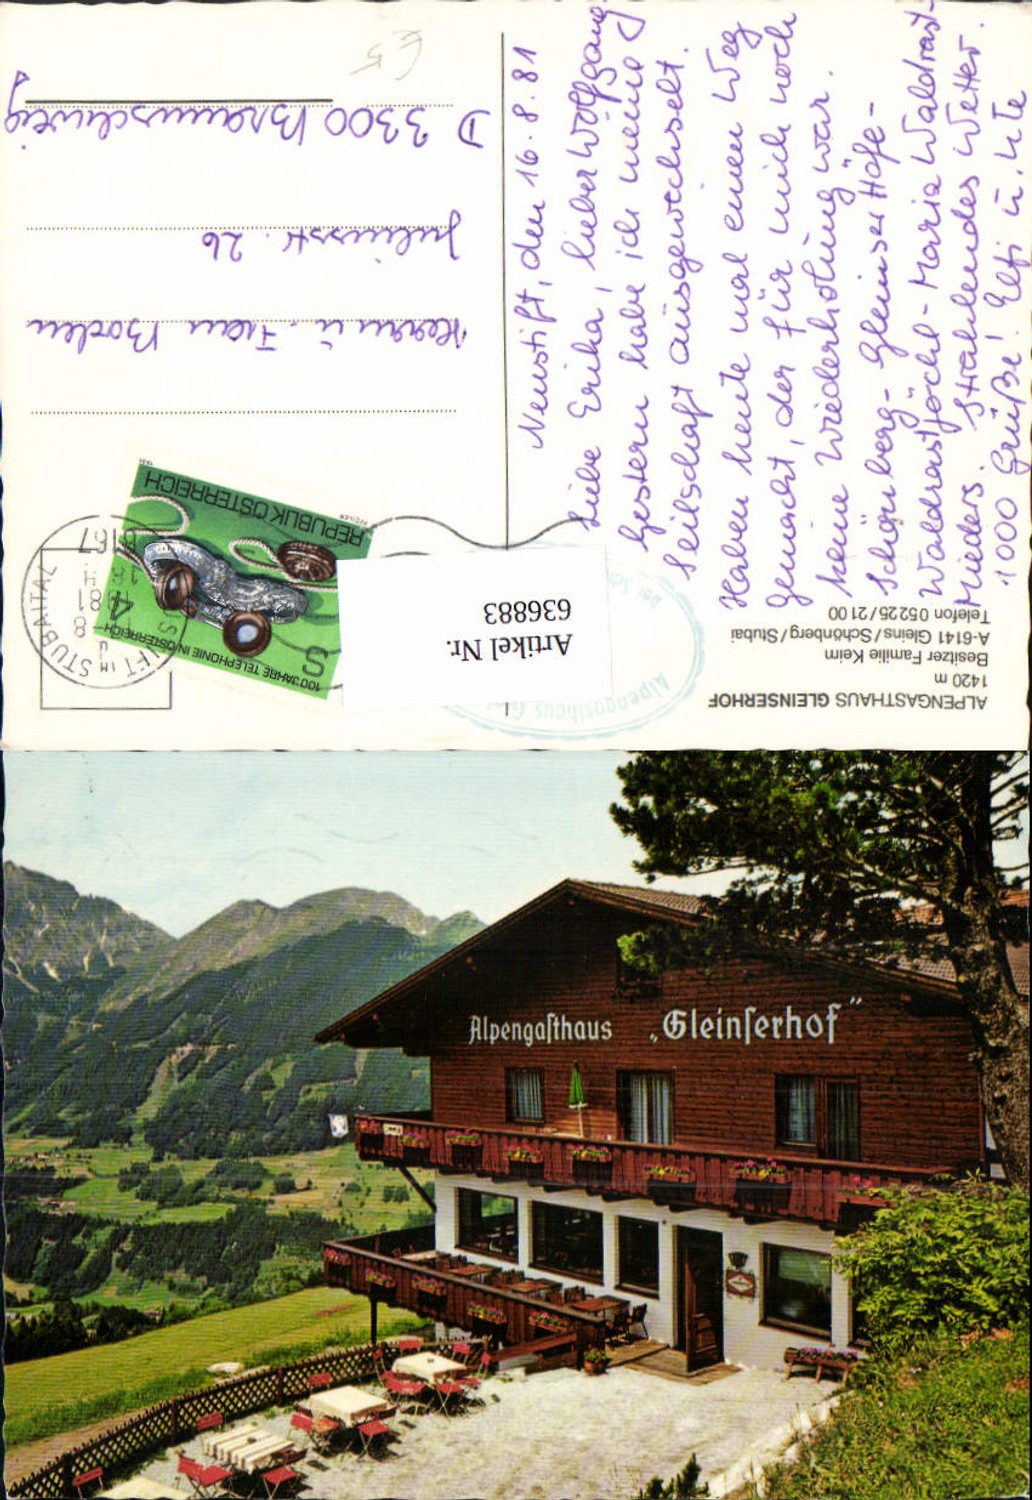 Neustift, den 16.8.81
Liebe Erika, lieber Wolfgang
Gestern habe ich meine
Seilschaft ausgewechselt.
Haben heute mal einen Weg
gemacht, der für mich noch
keine Wiederholung war.
Schönberg - Gleinser Höfe -
Waldrastjöchl - Maria Waldrast -
Mieders. Strahlendes Wetter.
1000 Grüße! Elfi u. Ute
Herrn u. Frau Boden
Juliusstr. 26
D 3300 Braunschweig
REPUBLIK ÖSTERREICH
100 JAHRE TELEPHONIE IN ÖSTERREICH
S 4
1981
6167
STUBAITAL
Artikel Nr.
636883
Alpengasthaus
ALPENGASTHAUS GLEINSERHOF
1420 m
Besitzer Familie Keim
A-6141 Gleins/Schönberg/Stubai
Telefon 05225/2100
Alpengaſthaus „Gleinſerhof“